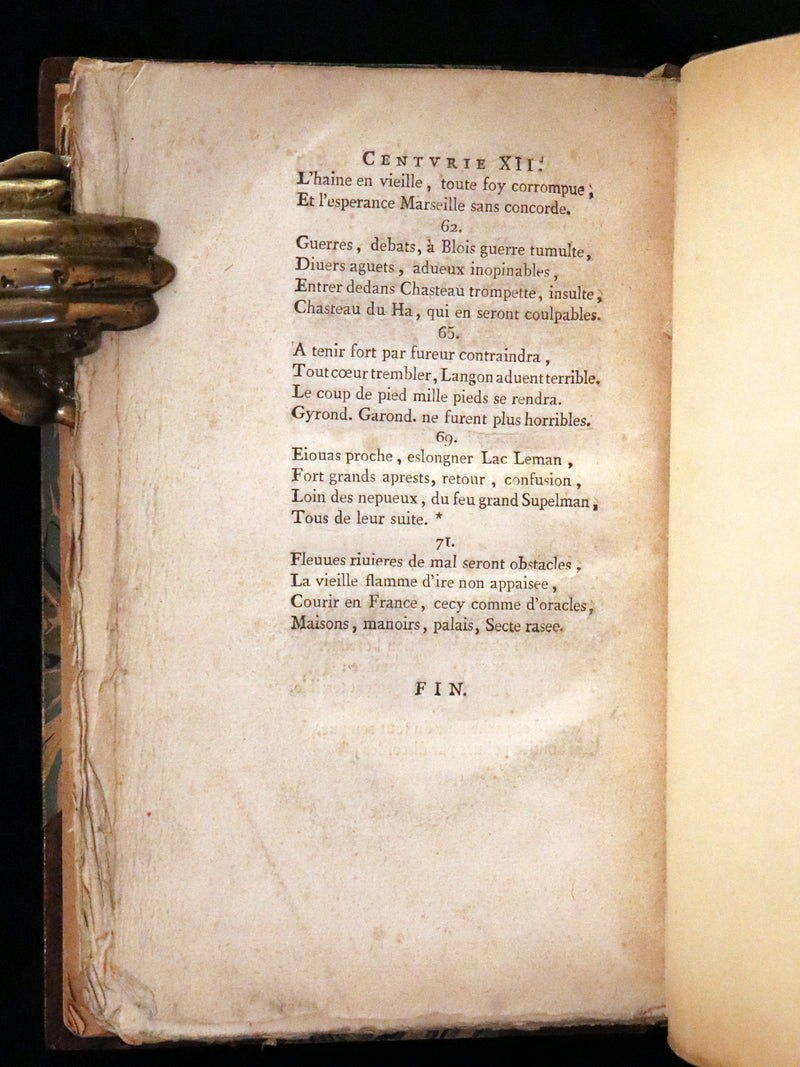 CENTVRIE XII.
L'haine en vieille, toute foy corrompue;
Et l'esperance Marseille sans concorde.
62.
Guerres, debats, à Blois guerre tumulte,
Diuers aguets, adueux inopinables,
Entrer dedans Chasteau trompette, insulte,
Chasteau du Ha, qui en seront coulpables.
65.
A tenir fort par fureur contraindra,
Tout cœur trembler, Langon aduent terrible.
Le coup de pied mille pieds se rendra.
Gyrond. Garond. ne furent plus horribles.
69.
Eiouas proche, eslongner Lac Leman,
Fort grands aprests, retour, confusion,
Loin des nepueux, du feu grand Supelman,
Tous de leur suite. *
71.
Fleuues riuieres de mal seront obstacles,
La vieille flamme d'ire non appaisee,
Courir en France, cecy comme d'oracles,
Maisons, manoirs, palais, Secte rasee.
FIN.